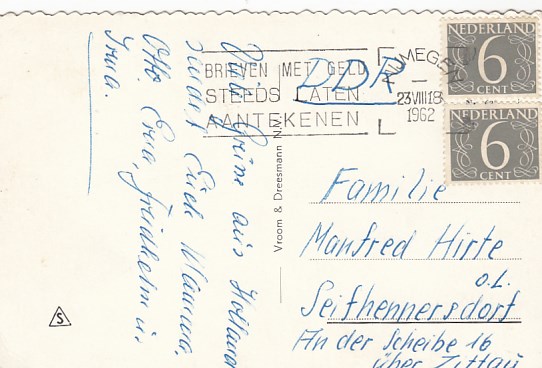 NEDERLAND
6
CENT
NEDERLAND
6
CENT
NIJMEGEN
23 VIII 18
1962
BRIEVEN MET GELD
STEEDS LATEN
AANTEKENEN
DDR
Vroom & Dreesmann N.V.
Grüße aus Holland
sendet Euch
Otto, Erna, Friedhelm u.
Irma.
Familie
Manfred Hirte
o.L.
Seifhennersdorf
An der Scheibe 16
über Zittau
S